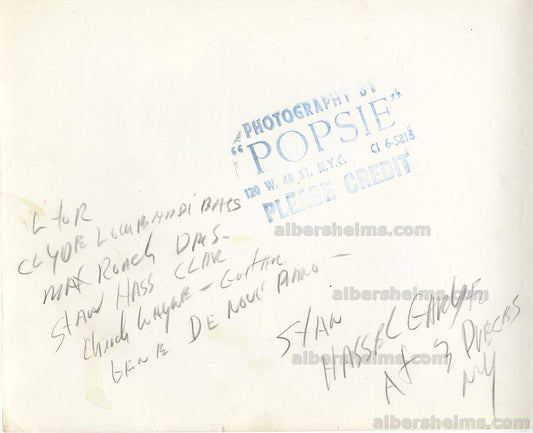 PHOTOGRAPHY BY
"POPSIE"
120 W. 48 ST. N.Y.C. CI 6-5815
PLEASE CREDIT
albersheims.com
L to R
CLYDE LOMBARDI BASS
MAX ROACH DMS-
STAN HASS. CLAR
Chuck WAYNE - GUITAR
GENE DE NOVI PIANO -
albersheims.com
STAN
HASSEL
albersheims.com
AT 3 DUECES
NY
albersheims.com